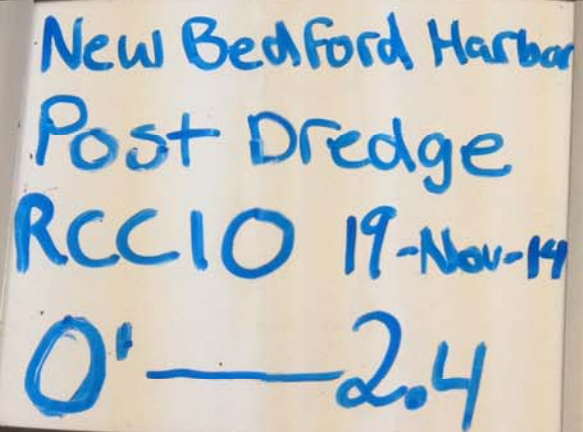 New Bedford Harbor
Post Dredge
RCC10 19-Nov-14
0' — 2.4